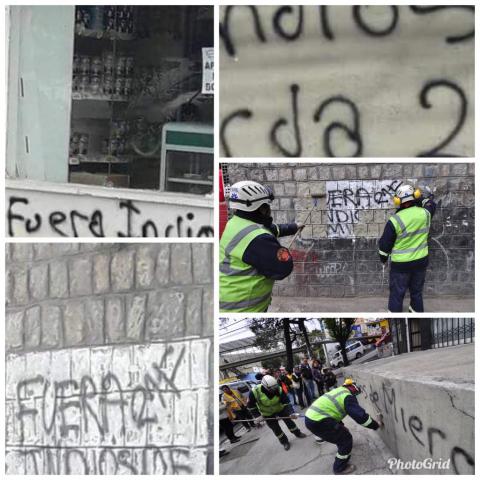 Fuera Indio
ndios
rda 2
FUERA
INDIO
FUERA
INDIOS DE
de Mierd
PhotoGrid